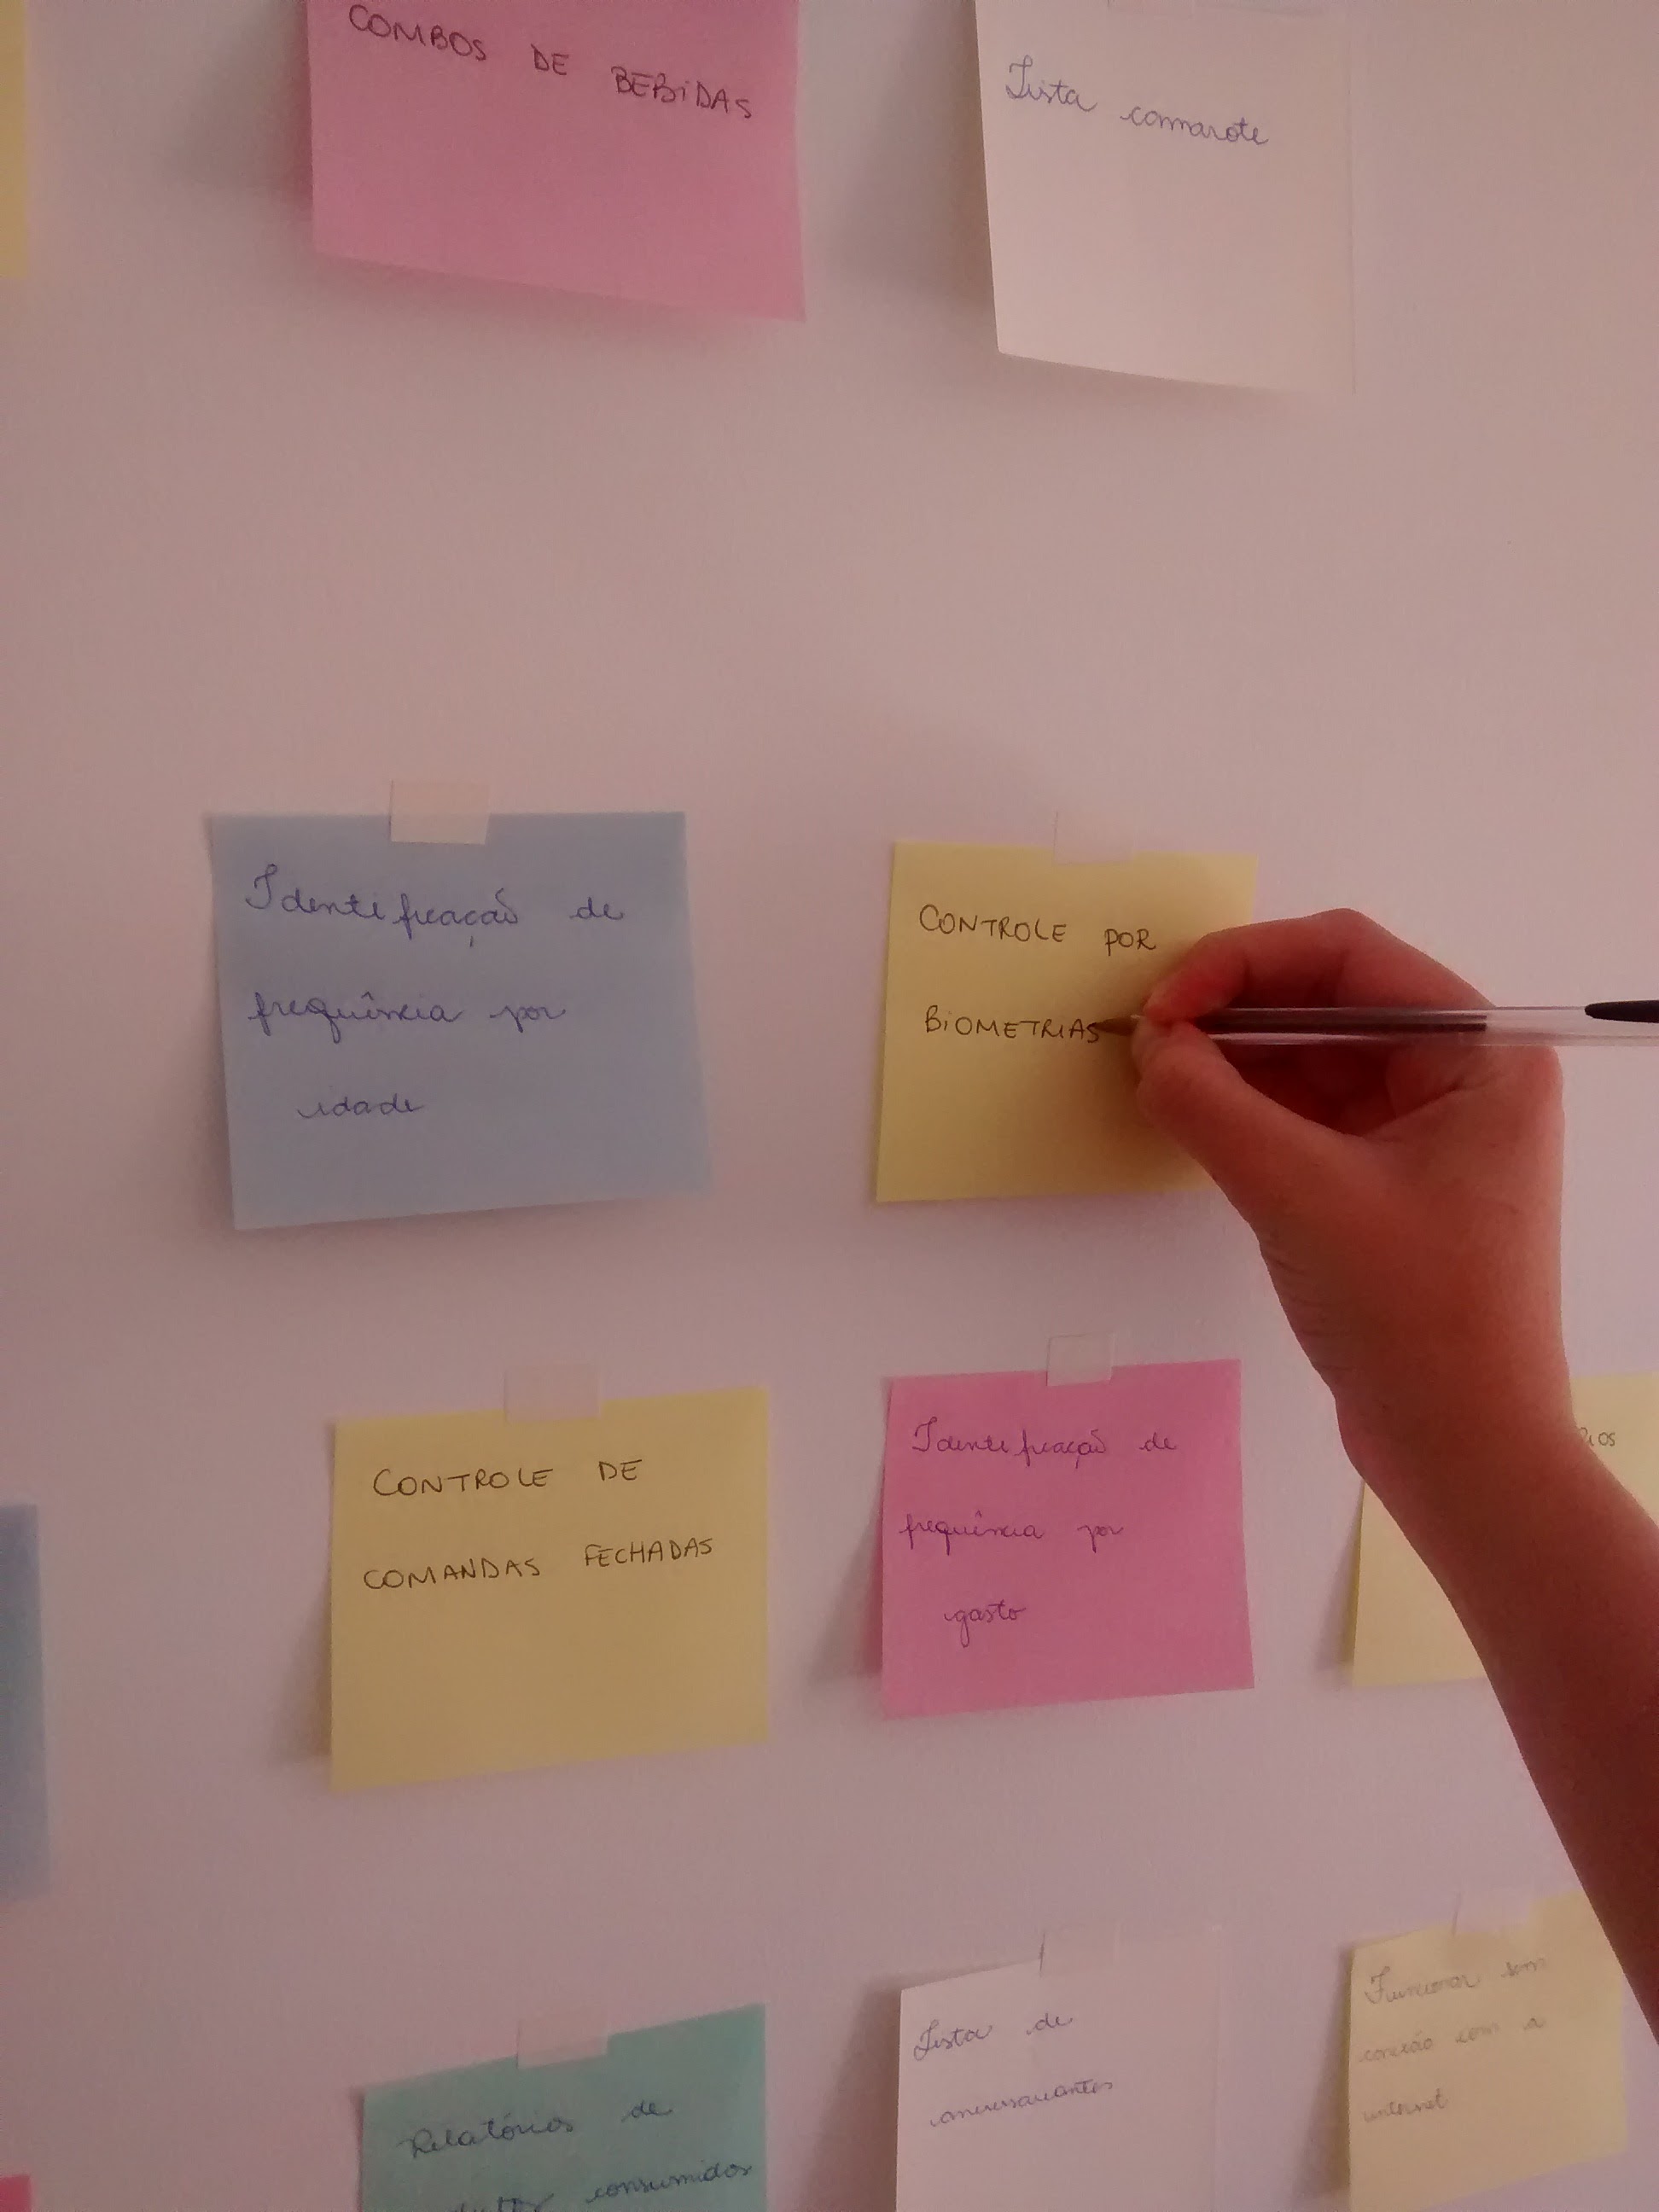 COMBOS DE BEBIDAS
Lista camarote
Identificação de
frequência por
idade
CONTROLE POR
BIOMETRIAS
CONTROLE DE
COMANDAS FECHADAS
Identificação de
frequência por
gasto
Relatórios de
consumidos
Lista de
aniversariantes
Funcionar sem
conexão com a
internet